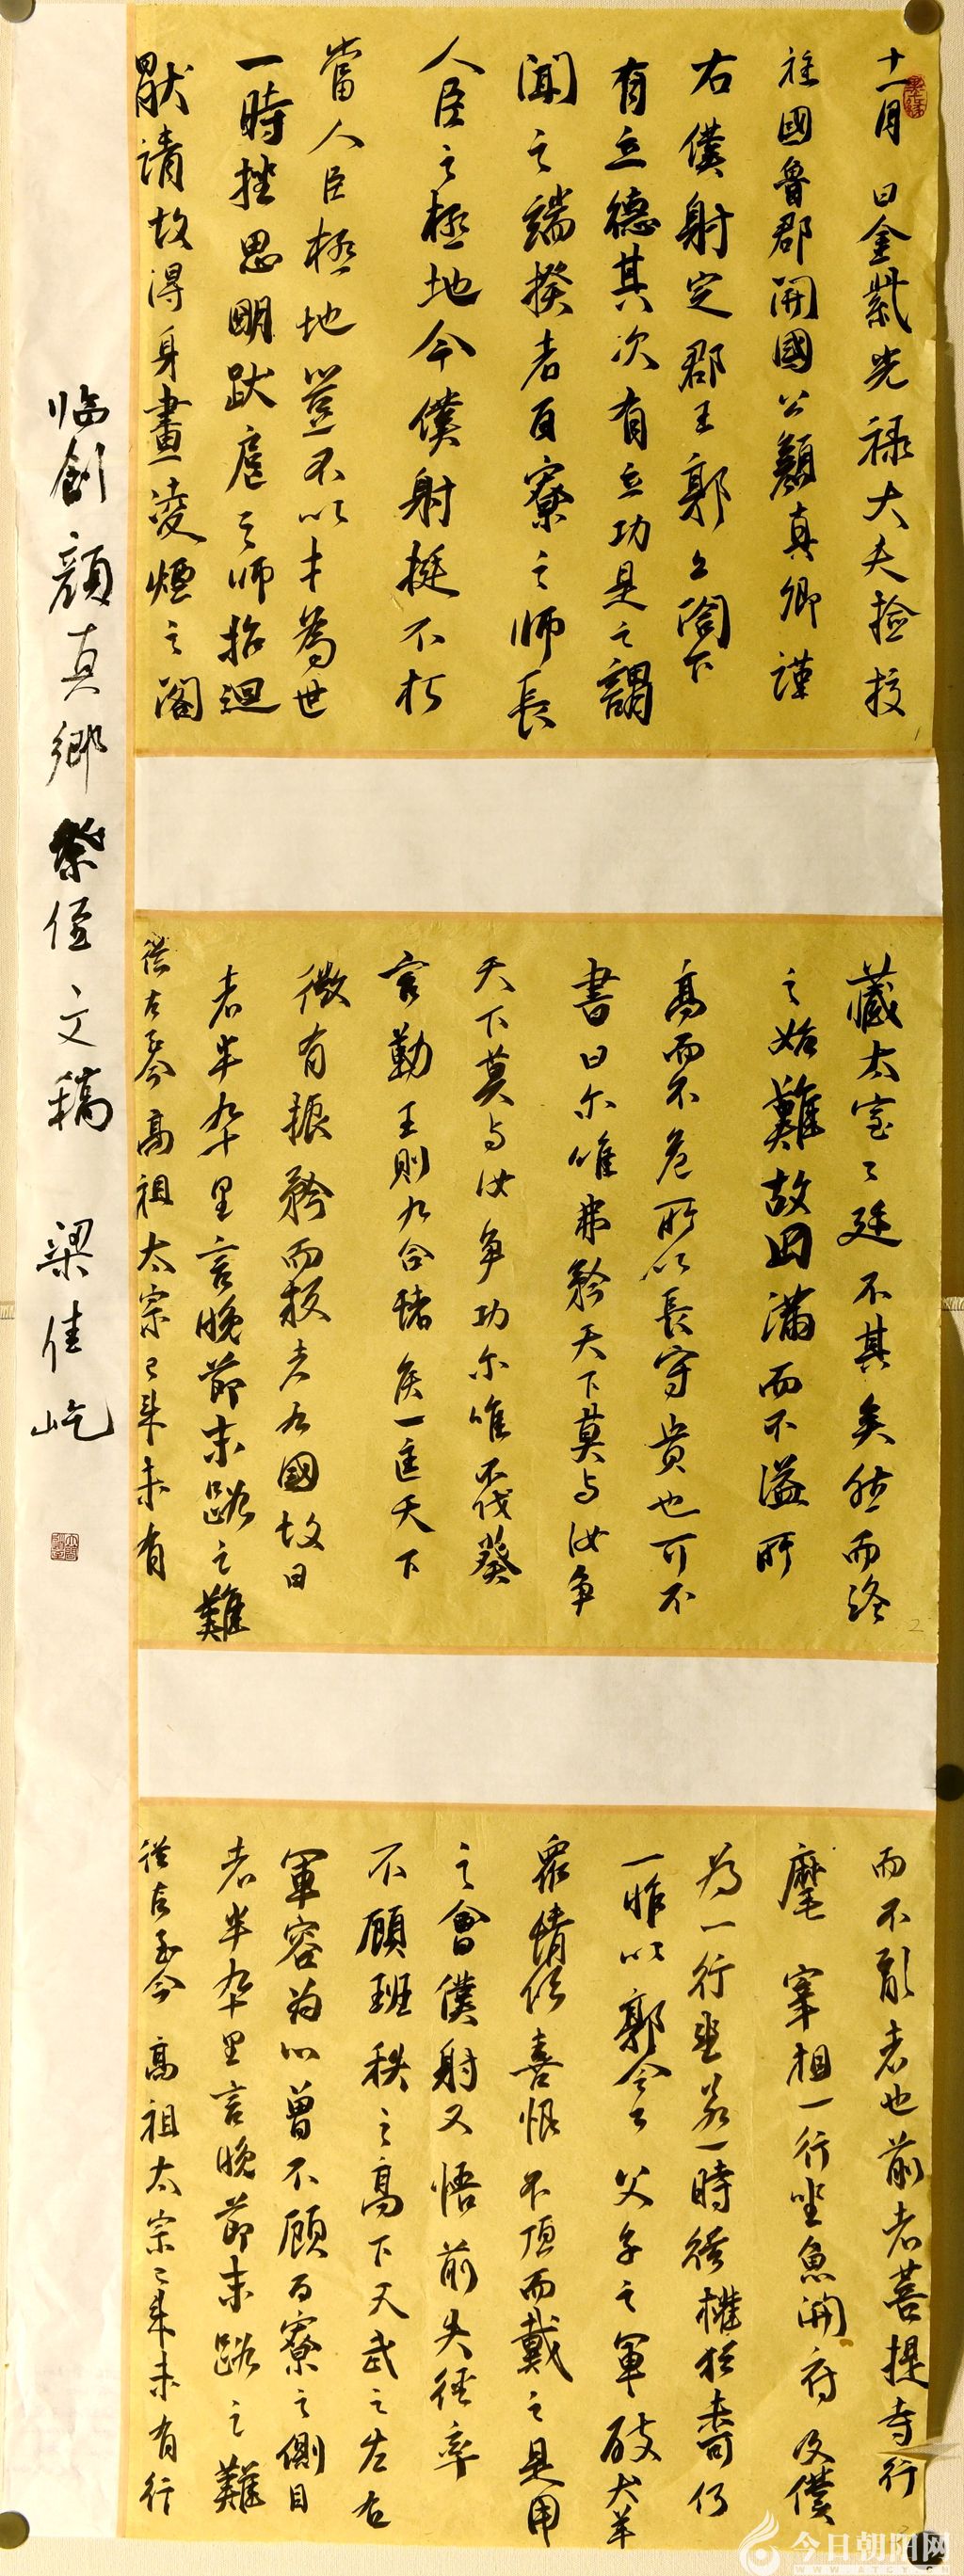 十一月 日金紫光禄大夫捡挍
柱國魯郡開國公顏真卿謹
右僕射定郡王郭公閤下
有立德其次有立功是之謂
聞之端揆者百寮之師長
人臣之極地今僕射挺不朽
當人臣極地豈不以才為世
一時挫思明跋扈之師抬迴
猒請故得身畫淩煙之閣
藏太室之廷不其矣然而終
之始難故曰滿而不溢所
高而不危所以長守貴也可不
書曰尔唯弗矜天下莫与汝争
天下莫与汝争功尔唯不伐葵
言勤王則九合諸侯一匡天下
微有振矜而叛者九國故曰
者半九十里言晚節末路之難
從古至今高祖太宗已来未有
而不願者也前者菩提寺行
麾 宰相一行坐魚開府及僕
为一行坐若一時從權猶未可何
一昨以郭令公父子之軍破犬羊
眾情欣喜恨不頂而戴之是用
之會僕射又悟前失徑率
不顧班秩之高下文武之左右
軍容为心曾不顧百寮之側目
者半九十里言晚節末路之難
從古至今高祖太宗已来未有行
临創顏真卿祭侄文稿 梁佳屹
今日朝阳网